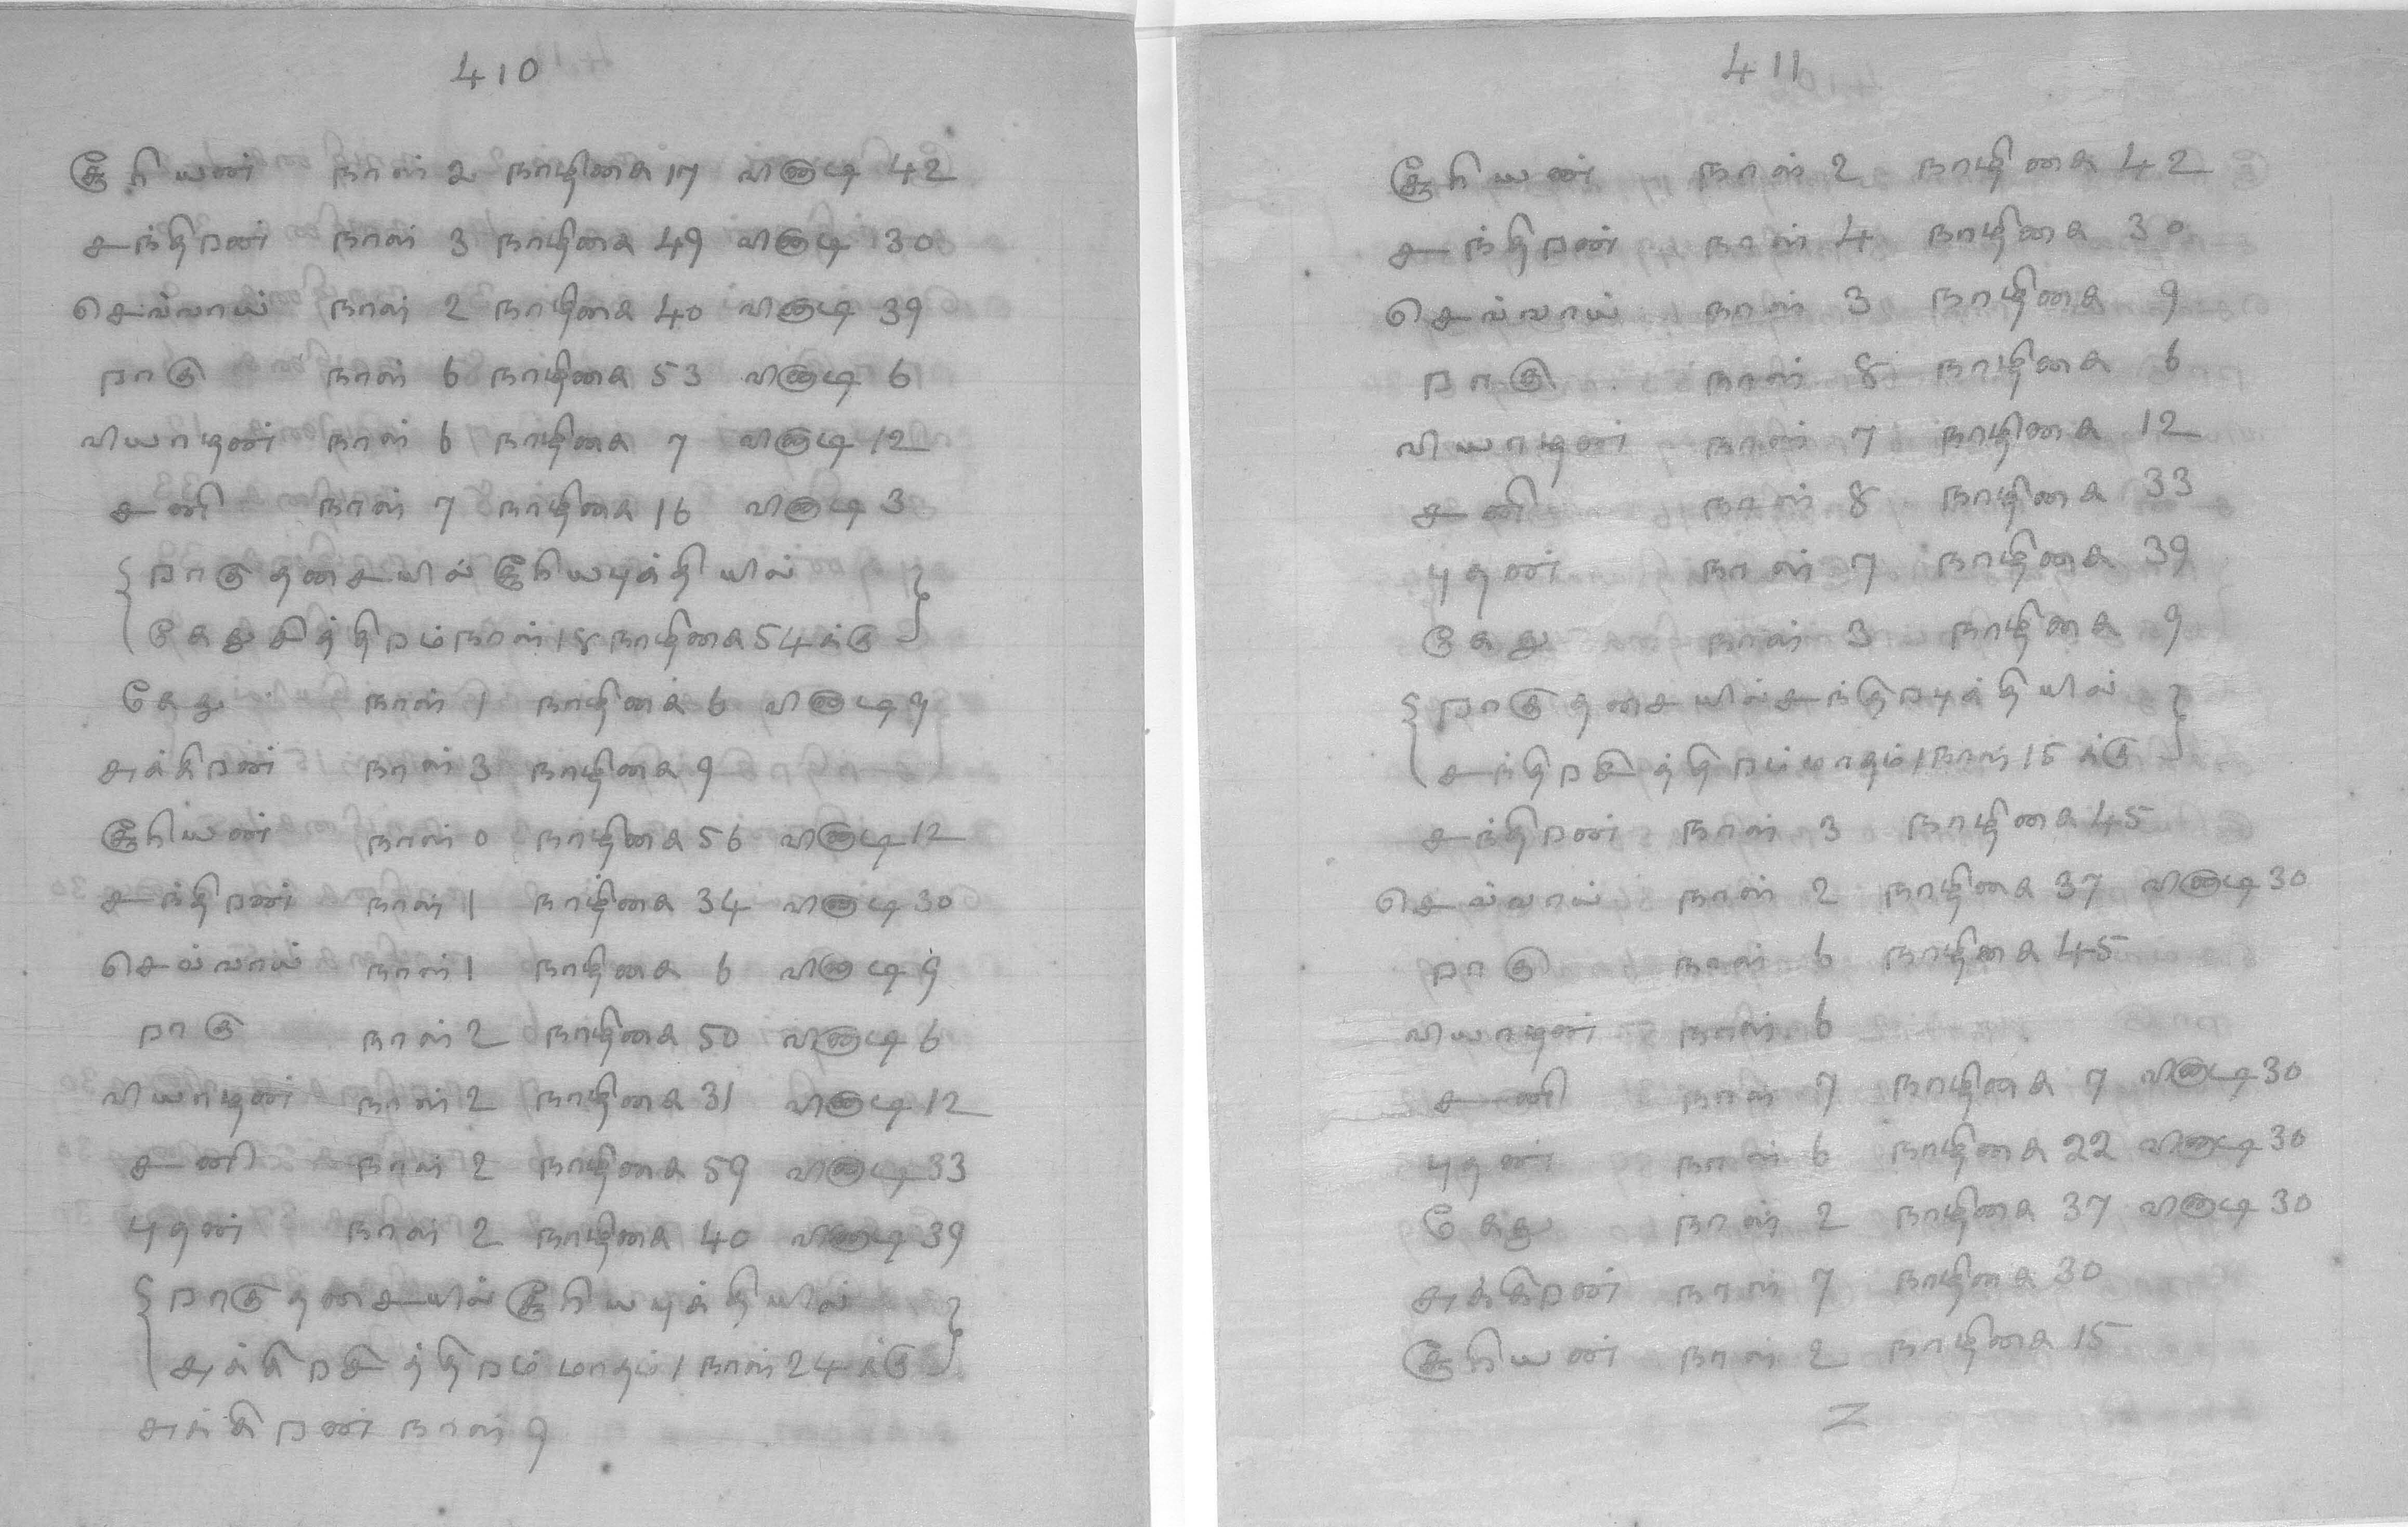 410
சூரியண் நாள் 2 நாழிகை 17 விநாடி 42
சந்திறண் நாள் 3 நாழிகை 49 விநாடி 30
செவ்வாய் நாள் 2 நாழிகை 40 விநாடி 39
றாகு நாள் 6 நாழிகை 53 விநாடி 6
வியாழண் நாள் 6 நாழிகை 7 விநாடி 12
சனி நாள் 7 நாழிகை 16 விநாடி 3
றாகு தசையில் சூரியபுக்தியில்
கேதுசித்திறம் நாள் 18 நாழிகை 54 க்கு
கேது நாள் 1 நாழிகை 6 விநாடி 9
சுக்கிறண் நாள் 3 நாழிகை 9
சூரியண் நாள் 0 நாழிகை 56 விநாடி 12
சந்திறண் நாள் 1 நாழிகை 34 விநாடி 30
செவ்வாய் நாள் 1 நாழிகை 6 விநாடி 9
றாகு நாள் 2 நாழிகை 50 விநாடி 6
வியாழண் நாள் 2 நாழிகை 31 விநாடி 12
சனி நாள் 2 நாழிகை 59 விநாடி 33
புதண் நாள் 2 நாழிகை 40 விநாடி 39
றாகு தசையில் சூரியபுக்தியில்
சுக்கிறசித்திறம் மாதம் 1 நாள் 24 க்கு
சுக்கிறண் நாள் 9
411
சூரியண் நாள் 2 நாழிகை 42
சந்திறண் நாள் 4 நாழிகை 30
செவ்வாய் நாள் 3 நாழிகை 9
றாகு நாள் 8 நாழிகை 6
வியாழண் நாள் 7 நாழிகை 12
சனி நாள் 8 நாழிகை 33
புதண் நாள் 7 நாழிகை 39
கேது நாள் 3 நாழிகை 9
றாகு தசையில் சந்திறபுக்தியில்
சந்திறசித்திறம் மாதம் 1 நாள் 15 க்கு
சந்திறண் நாள் 3 நாழிகை 45
செவ்வாய் நாள் 2 நாழிகை 37 விநாடி 30
றாகு நாள் 6 நாழிகை 45
வியாழண் நாள் 6
சனி நாள் 7 நாழிகை 7 விநாடி 30
புதண் நாள் 6 நாழிகை 22 விநாடி 30
கேது நாள் 2 நாழிகை 37 விநாடி 30
சுக்கிறண் நாள் 7 நாழிகை 30
சூரியண் நாள் 2 நாழிகை 15